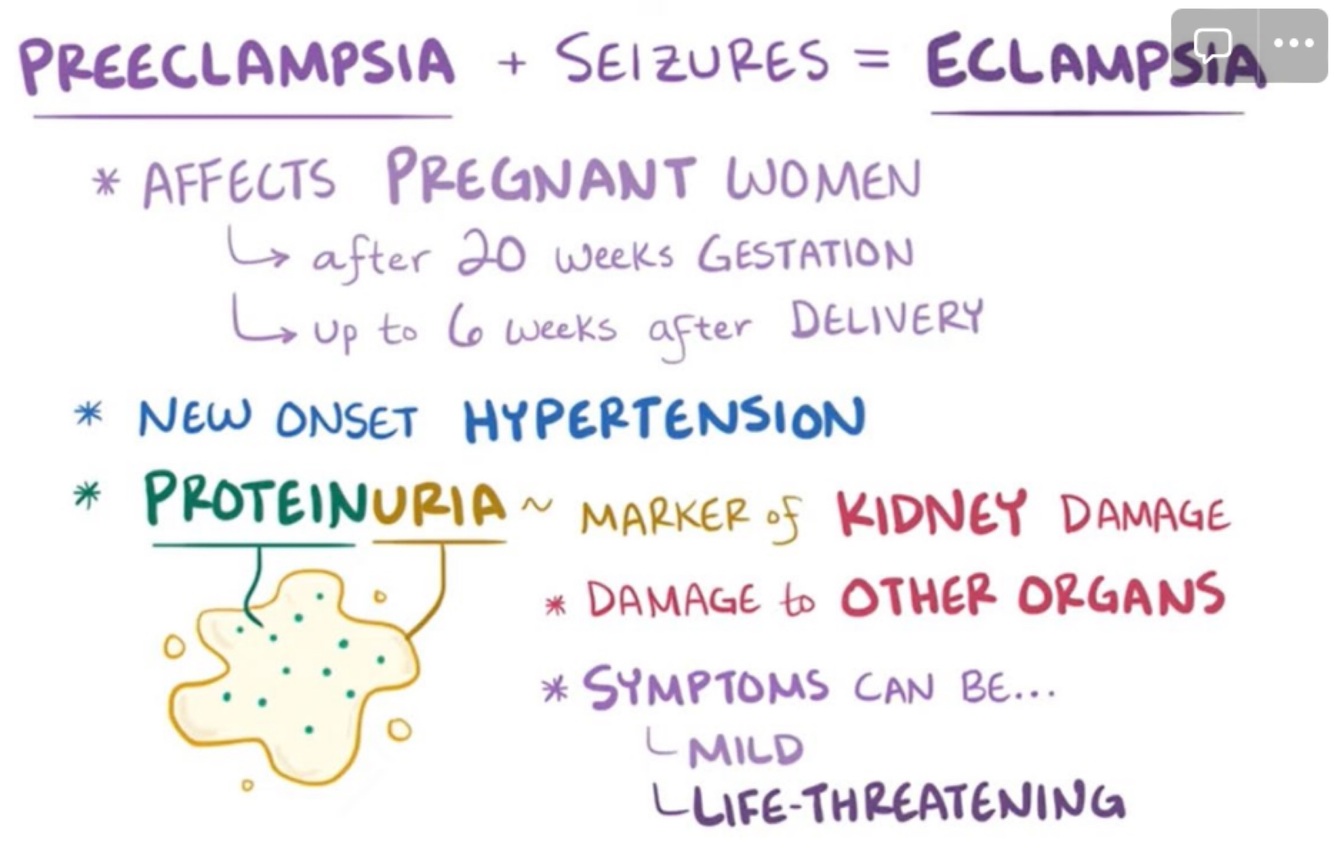 PREECLAMPSIA + SEIZURES = ECLAMPSIA
* AFFECTS PREGNANT WOMEN
↳ after 20 weeks GESTATION
↳ up to 6 weeks after DELIVERY
* NEW ONSET HYPERTENSION
* PROTEINURIA ~ MARKER of KIDNEY DAMAGE
* DAMAGE to OTHER ORGANS
* SYMPTOMS CAN BE...
└ MILD
└ LIFE-THREATENING